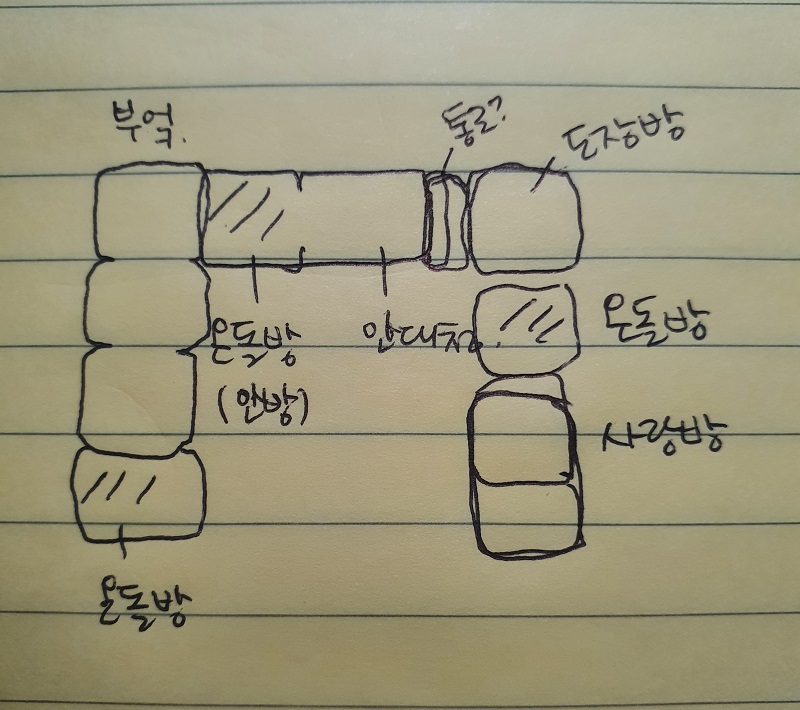 부엌.
통로?
도장방
온돌방
(안방)
안대청.
온돌방
사랑방
온돌방